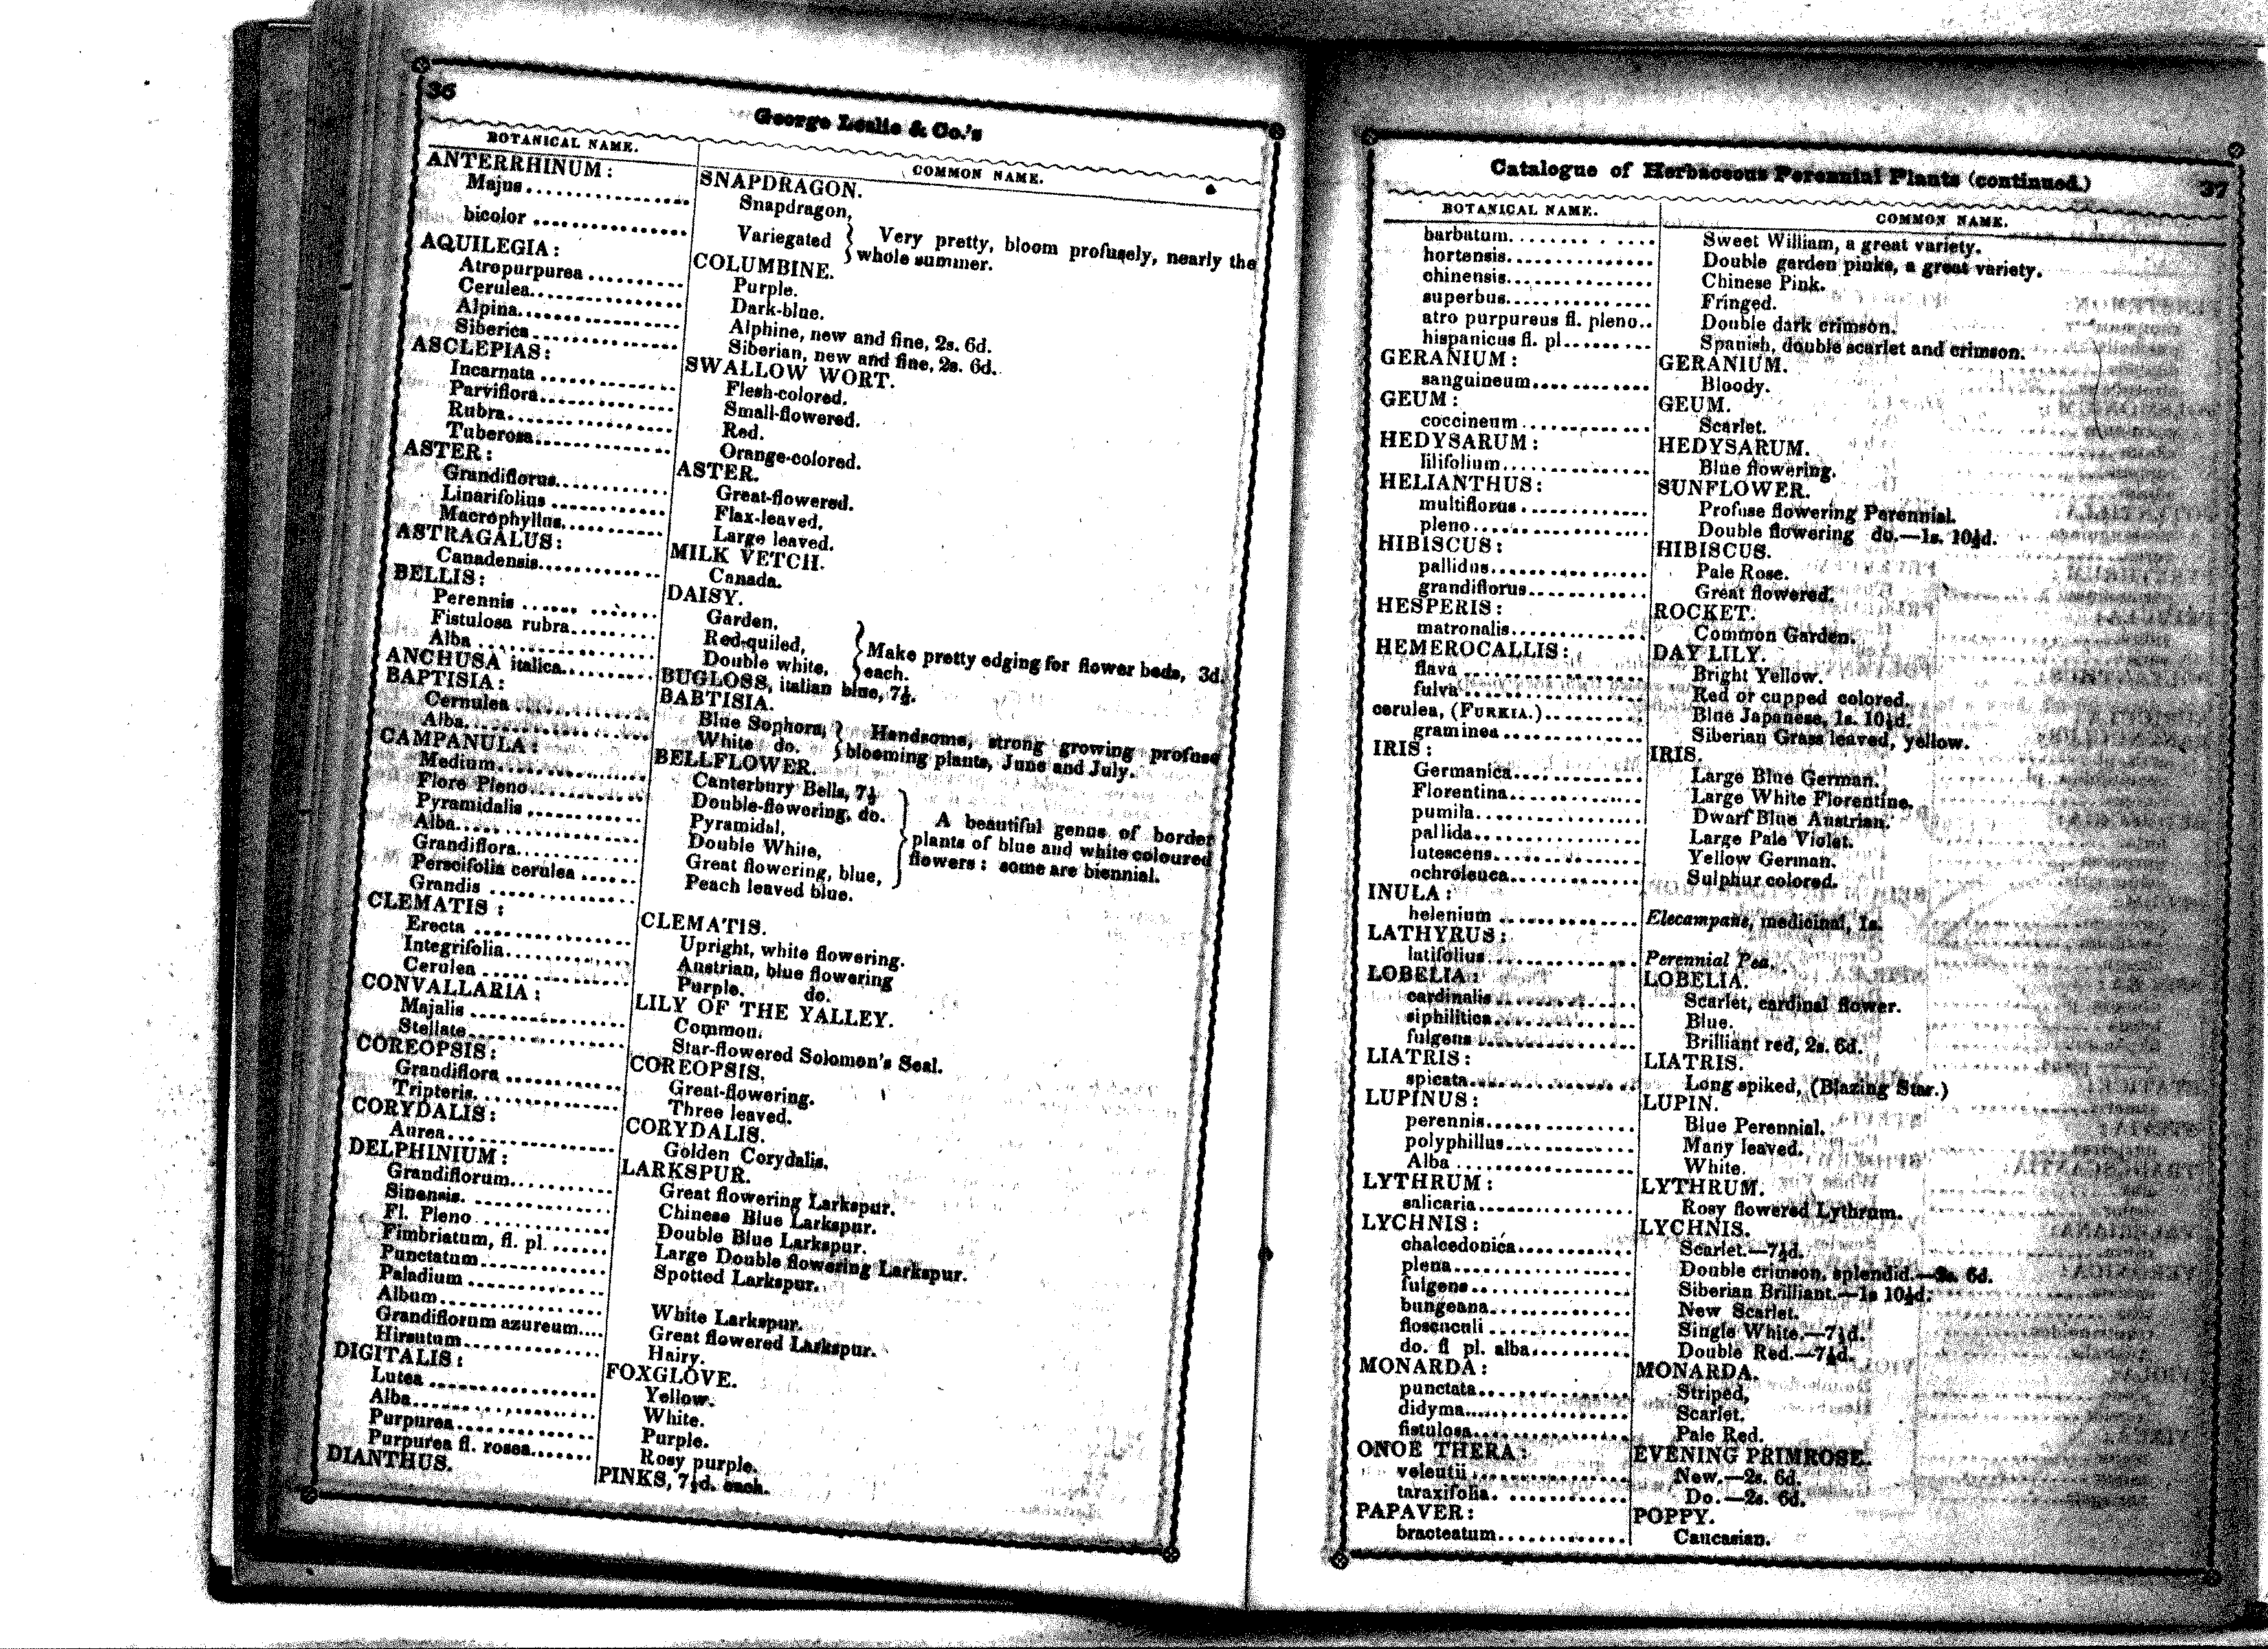 36
George Leslie & Co.'s
BOTANICAL NAME. COMMON NAME.
ANTERRHINUM: SNAPDRAGON.
Majus Snapdragon,
bicolor Variegated } Very pretty, bloom profusely, nearly the whole summer.
AQUILEGIA: COLUMBINE.
Atropurpurea Purple.
Cerulea Dark-blue.
Alpina Alphine, new and fine, 2s. 6d.
Siberica Siberian, new and fine, 2s. 6d.
ASCLEPIAS: SWALLOW WORT.
Incarnata Flesh-colored.
Parviflora Small-flowered.
Rubra Red.
Tuberosa Orange-colored.
ASTER: ASTER.
Grandiflorus Great-flowered.
Linarifolius Flax-leaved.
Macrophyllus Large leaved.
ASTRAGALUS: MILK VETCH.
Canadensis Canada.
BELLIS: DAISY.
Perennis Garden,
Fistulosa rubra Red-quiled, } Make pretty edging for flower beds, 3d.
Alba Double white, } each.
ANCHUSA italica BUGLOSS, italian blue, 7½.
BAPTISIA: BABTISIA.
Cernulea Blue Sophora, } Handsome, strong growing profuse
Alba White do. } blooming plants, June and July.
CAMPANULA: BELLFLOWER.
Medium Canterbury Bells, 7½
Flore Pleno Double-flowering, do.
Pyramidalis Pyramidal, } A beautiful genus of border
Alba Double White, plants of blue and white coloured
Grandiflora Great flowering, blue, flowers: some are biennial.
Perscifolia cerulea Peach leaved blue.
Grandis
CLEMATIS: CLEMATIS.
Erecta Upright, white flowering.
Integrifolia Austrian, blue flowering
Cerulea Purple. do.
CONVALLARIA: LILY OF THE VALLEY.
Majalis Common.
Stellate Star-flowered Solomon's Seal.
COREOPSIS: COREOPSIS.
Grandiflora Great-flowering.
Tripteris Three leaved.
CORYDALIS: CORYDALIS.
Aurea Golden Corydalis.
DELPHINIUM: LARKSPUR.
Grandiflorum Great flowering Larkspur.
Sinensis Chinese Blue Larkspur.
Fl. Pleno Double Blue Larkspur.
Fimbriatum, fl. pl. Large Double flowering Larkspur.
Punctatum Spotted Larkspur.
Paladium
Album White Larkspur.
Grandiflorum azureum Great flowered Larkspur.
Hirsutum Hairy.
DIGITALIS: FOXGLOVE.
Lutea Yellow.
Alba White.
Purpurea Purple.
Purpurea fl. rosea Rosy purple.
DIANTHUS. PINKS, 7½d. each.
Catalogue of Herbaceous Perennial Plants (continued.) 37
BOTANICAL NAME. COMMON NAME.
barbatum Sweet William, a great variety.
hortensis Double garden pinks, a great variety.
chinensis Chinese Pink.
superbus Fringed.
atro purpureus fl. pleno Double dark crimson.
hispanicus fl. pl. Spanish, double scarlet and crimson.
GERANIUM: GERANIUM.
sanguineum Bloody.
GEUM: GEUM.
coccineum Scarlet.
HEDYSARUM: HEDYSARUM.
lilifolium Blue flowering.
HELIANTHUS: SUNFLOWER.
multiflorus Profuse flowering Perennial.
pleno Double flowering do.—1s. 10½d.
HIBISCUS: HIBISCUS.
pallidus Pale Rose.
grandiflorus Great flowered.
HESPERIS: ROCKET.
matronalis Common Garden.
HEMEROCALLIS: DAY LILY.
flava Bright Yellow.
fulva Red or cupped colored.
cerulea, (FURKIA.) Blue Japanese, 1s. 10½d.
graminea Siberian Grass leaved, yellow.
IRIS: IRIS.
Germanica Large Blue German.
Florentina Large White Florentine.
pumila Dwarf Blue Austrian.
pallida Large Pale Violet.
lutescens Yellow German.
ochroleuca Sulphur colored.
INULA:
helenium Elecampane, medicinal, 1s.
LATHYRUS:
latifolius Perennial Pea.
LOBELIA: LOBELIA.
cardinalis Scarlet, cardinal flower.
siphilitica Blue.
fulgens Brilliant red, 2s. 6d.
LIATRIS: LIATRIS.
spicata Long spiked, (Blazing Star.)
LUPINUS: LUPIN.
perennis Blue Perennial.
polyphillus Many leaved.
Alba White.
LYTHRUM: LYTHRUM.
salicaria Rosy flowered Lythrum.
LYCHNIS: LYCHNIS.
chalcedonica Scarlet.—7½d.
plena Double crimson, splendid.—2s. 6d.
fulgens Siberian Brilliant.—1s 10½d.
bungeana New Scarlet.
floscuculi Single White.—7½d.
do. fl pl. alba Double Red.—7½d.
MONARDA: MONARDA.
punctata Striped,
didyma Scarlet.
fistulosa Pale Red.
ONOE THERA: EVENING PRIMROSE.
veleutii New.—2s. 6d.
taraxifolia. Do.—2s. 6d.
PAPAVER: POPPY.
bracteatum Caucasian.